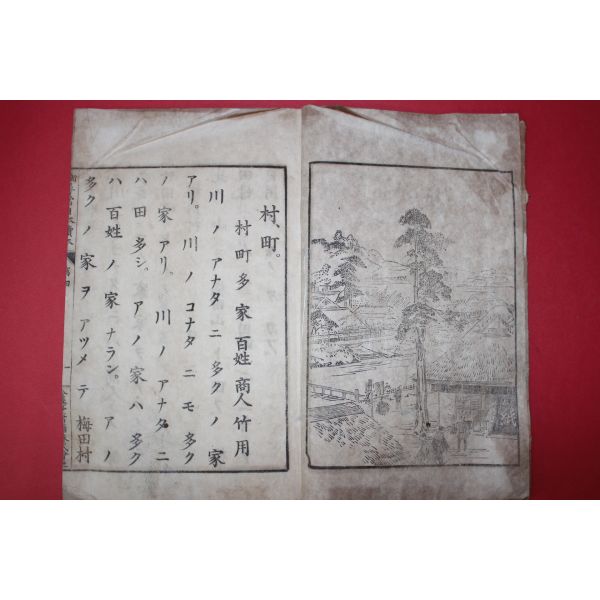 村、町。
村町多家百姓商人竹用
川ノアナタニ多クノ家
アリ。川ノコナタニモ多ク
ノ家アリ。川ノアナタニ
ハ田多シ。アノ家ハ多ク
ハ百姓ノ家ナラン。アノ
多クノ家ヲアツメテ梅田村